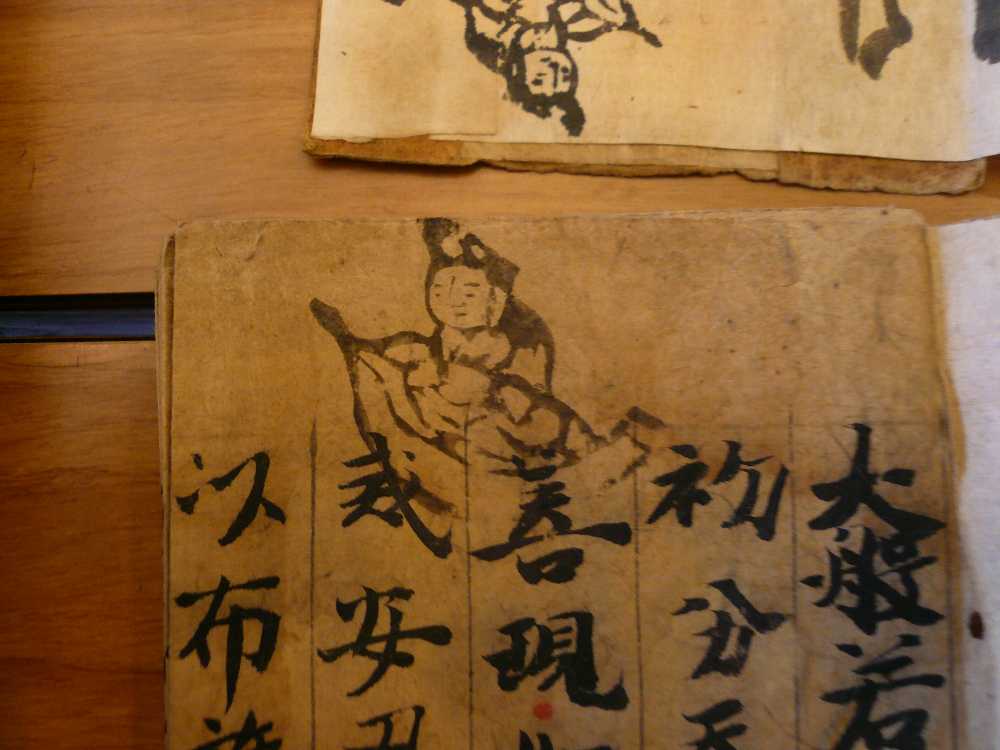 大般若
初分
善現
或安
以布